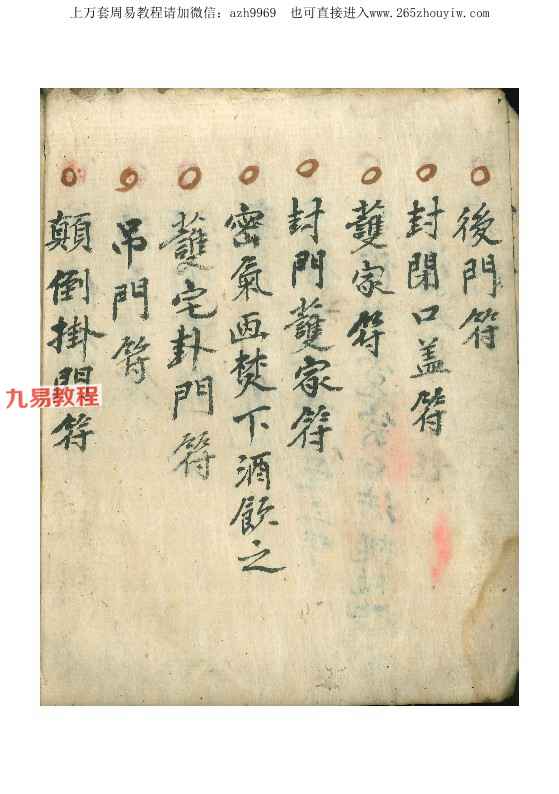 上万套周易教程请加微信：azh9969 也可直接进入www.265zhouyiw.com
後門符
封閉口盖符
護家符
封門護家符
密氣画焚下酒飲之
護宅卦門符
吊門符
顛倒掛門符
九易教程